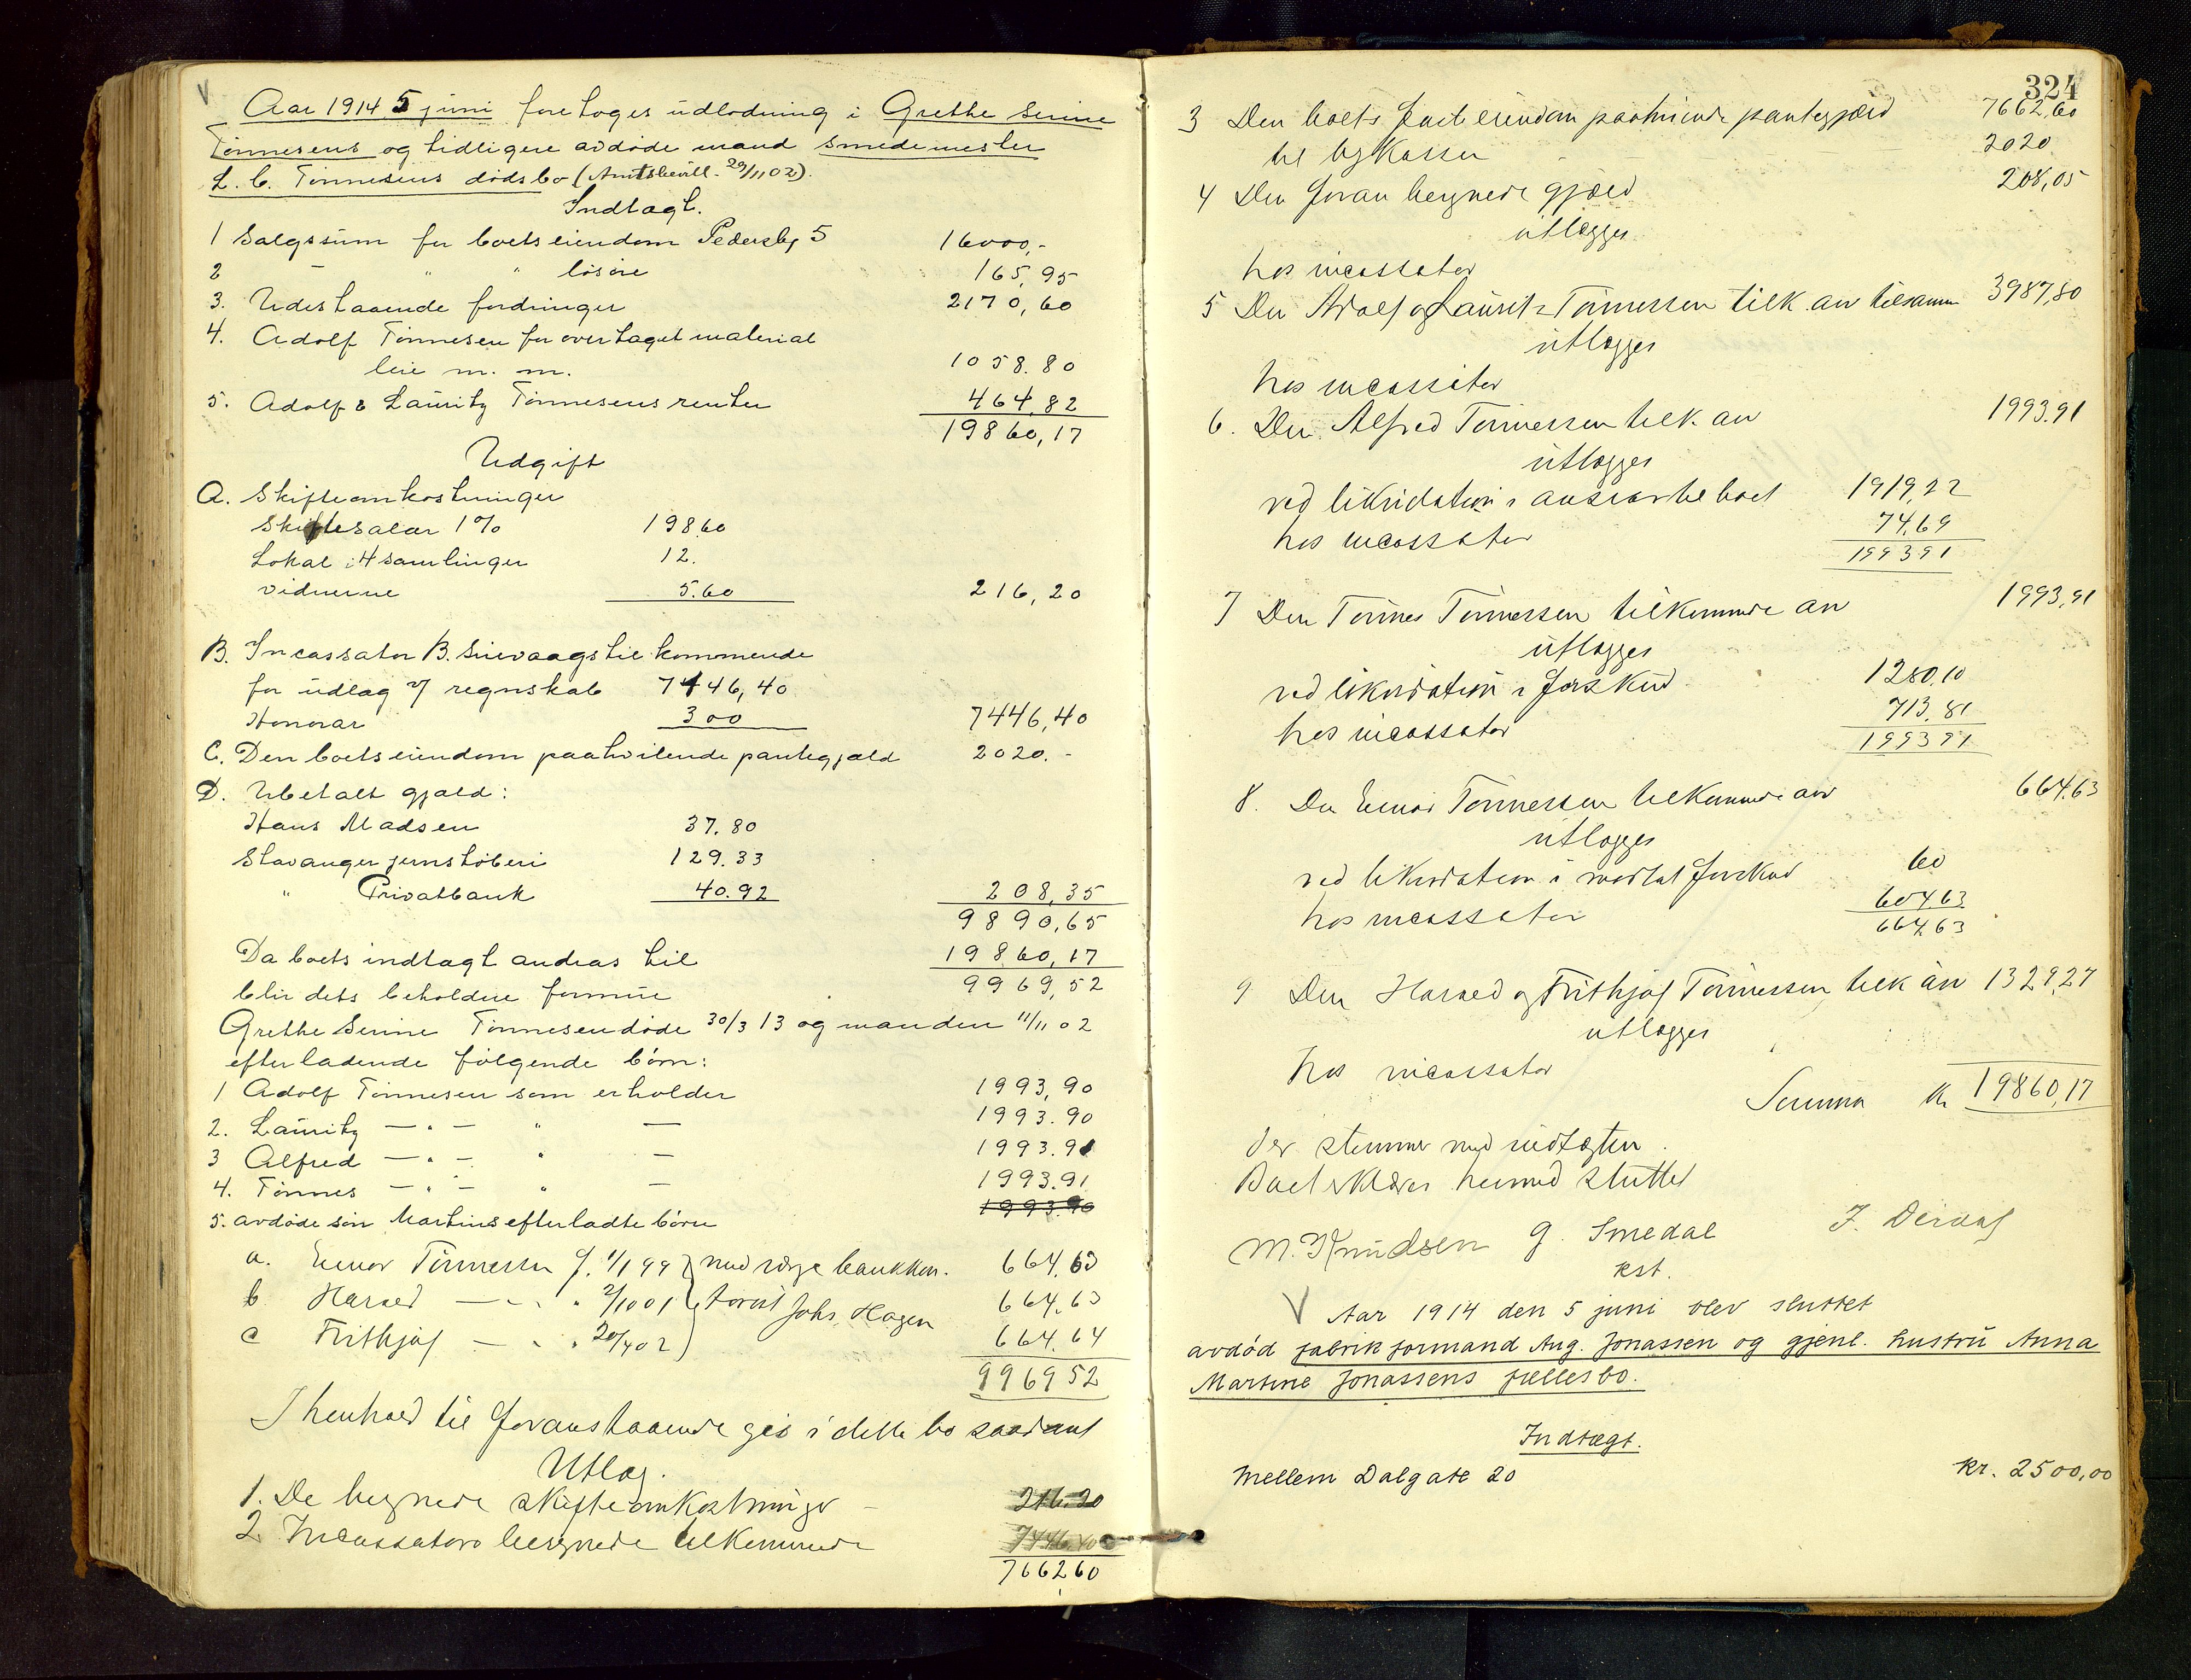 Aar 1914 5 juni foretoges udlodning i Grethe Serine
Tönnesens og tidligere avdöde mand Smedemester
L. C. Tönnesens dödsbo (Amtsbevill. 29/11 02).
Indtægt.
1 Salgssum for boets eiendom Pedersbg 5 16000,-
2 — " " lösöre 165,95
3. Udestaaende fordringer 2170,60
4. Adolf Tönnesen for overtaget material
leie m. m. 1058.80
5. Adolf & Lauritz Tönnesens renter 464,82
19860,17
Udgift
A. Skifteomkostninger
Skiftesalær 1% 198.60
Lokal i 4 samlinger 12.
vidnerne 5.60 216,20
B. Incassator B. tilkommende
for udlag % regnskab 7146,40
Honorar 300 7446,40
C. Den boets eiendom paahvilende pantegjæld 2020.-
D. Ubetalt gjæld:
Hans Madsen 37.80
Stavanger jernstöberi 129.33
" Privatbank 40.92 208,35
9890,65
Da boets indtægt andras til 19860,17
blir dets beholdne formue 9969,52
Grethe Serine Tönnesen döde 30/3 13 og manden 11/11 02
efterladende fölgende börn:
1 Adolf Tönnesen som erholder 1993,90
2. Lauritz — " — " — 1993.90
3 Alfred — " — " — 1993.91
4. Tönnes — " — " — 1993.91
1993.90
5. avdöde sön Martins efterladte börn
a. Einar Tönnessen f. 1/1 99 med verge bankkon. 664.63
b Harald — " — " 2/10 01 Johs. Hagen 664.63
c Frithjof — " — " 20/4 02 664.64
996952
I henhold til foranstaaende gis i dette bo saadant
Utlæg.
1. De beregnede skifteomkostninger — 216.20
2 Incassators beregnede tilkommende 7446.40
766260
324
3 Den boets faste eiendom paahvilende pantegjæld 7662,60
til bykassen 2020
4 Den foran beregnede gjæld 208,05
utlægges
hos incassator
5 Den Adolf og Lauritz Tönnessen tilk. arv tilsamm 3987,80
utlægges
hos incassator
6. Den Alfred Tönnessen tilk. arv 1993.91
utlægges
ved likvidation i ansvar til boet 1919,22
hos incassator 74,69
199391
7 Den Tönnes Tönnessen tilkommende arv 1993,91
utlægges
ved likvidation i forskud 1280,10
hos incassator 713.81
199391
8. Den Einar Tönnessen tilkommende arv 664.63
utlægges
ved likvidation i mottat forskud 60
hos incassator 604.63
664,63
9 Den Harald og Frithjof Tönnessen tilk arv 1329,27
utlægges
hos incassator
Summa kr 19860,17
der stemmer med indtægten.
Boet erklæres hermed sluttet
M. Knudsen G. Smedal
kst.
Aar 1914 den 5 juni blev sluttet
avdöd fabrikformand Aug. Jonassen og gjenl. hustru Anna
Martine Jonassens fellesbo.
Indtægt.
Mellem Dalgate 20 kr. 2500,00